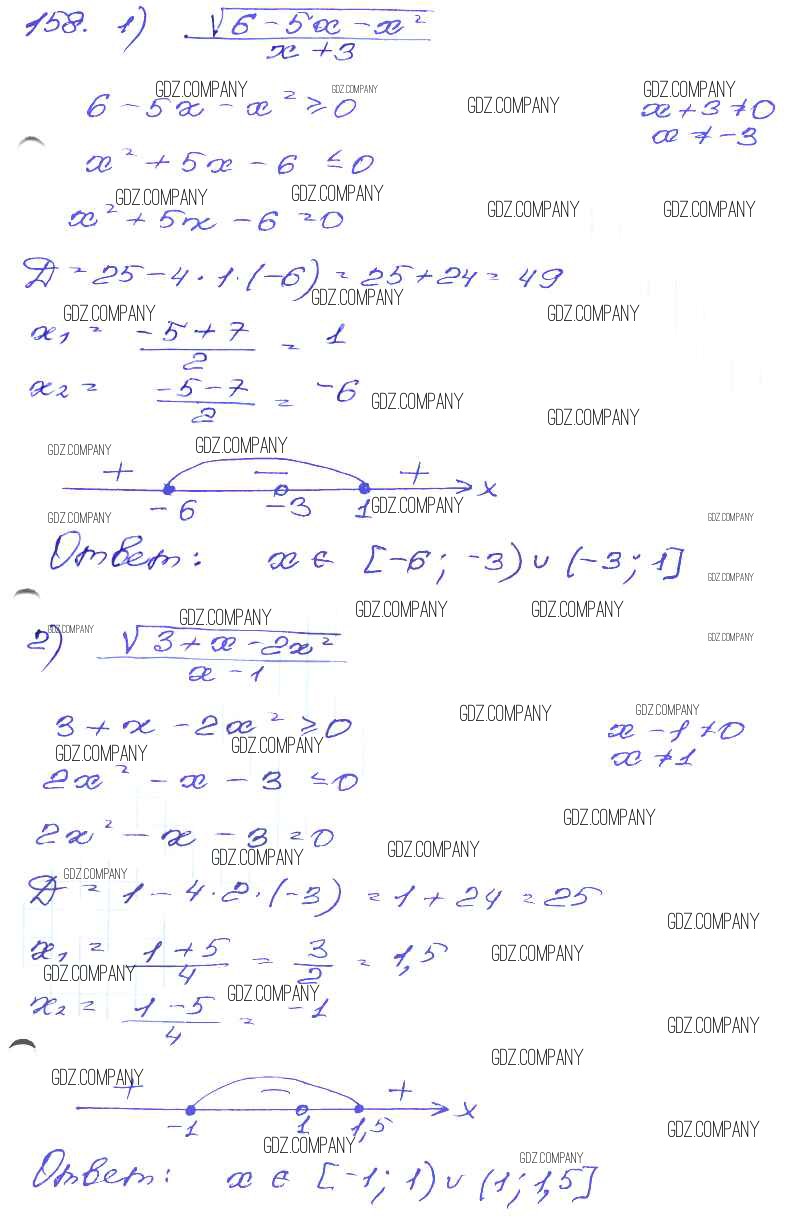 158. 1) √(6 - 5x - x²) / (x + 3)
GDZ.COMPANY GDZ.COMPANY GDZ.COMPANY
6 - 5x - x² ≥ 0 GDZ.COMPANY x + 3 ≠ 0
x ≠ -3
x² + 5x - 6 ≤ 0
GDZ.COMPANY GDZ.COMPANY
x² + 5x - 6 = 0 GDZ.COMPANY GDZ.COMPANY
Д = 25 - 4 · 1 · (-6) = 25 + 24 = 49
GDZ.COMPANY
GDZ.COMPANY GDZ.COMPANY
x₁ = (-5 + 7) / 2 = 1
x₂ = (-5 - 7) / 2 = -6 GDZ.COMPANY
GDZ.COMPANY
GDZ.COMPANY GDZ.COMPANY
+ − + x
-6 -3 1 GDZ.COMPANY
GDZ.COMPANY GDZ.COMPANY
Ответ: x ∈ [-6; -3) ∪ (-3; 1]
GDZ.COMPANY
GDZ.COMPANY GDZ.COMPANY GDZ.COMPANY
GDZ.COMPANY GDZ.COMPANY
2) √(3 + x - 2x²) / (x - 1)
GDZ.COMPANY GDZ.COMPANY
3 + x - 2x² ≥ 0 x - 1 ≠ 0
GDZ.COMPANY GDZ.COMPANY x ≠ 1
2x² - x - 3 ≤ 0
GDZ.COMPANY
2x² - x - 3 = 0
GDZ.COMPANY GDZ.COMPANY
GDZ.COMPANY
Д = 1 - 4 · 2 · (-3) = 1 + 24 = 25
GDZ.COMPANY
x₁ = (1 + 5) / 4 = 3 / 2 = 1,5 GDZ.COMPANY
GDZ.COMPANY
GDZ.COMPANY
x₂ = (1 - 5) / 4 = -1
GDZ.COMPANY
GDZ.COMPANY
GDZ.COMPANY
+ − + x
-1 1 1,5
GDZ.COMPANY
GDZ.COMPANY GDZ.COMPANY
Ответ: x ∈ [-1; 1) ∪ (1; 1,5]